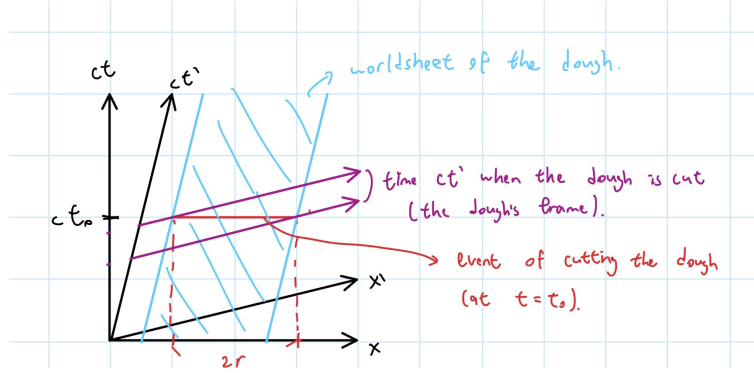 ct
ct'
worldsheet of the dough.
time ct' when the dough is cut
(the dough's frame).
ct₀
event of cutting the dough
(at t = t₀).
x'
x
2r